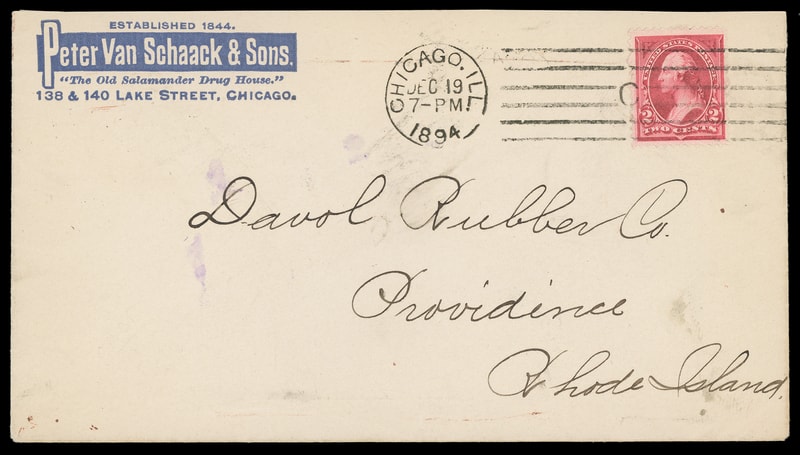 ESTABLISHED 1844.
Peter Van Schaack & Sons.
"The Old Salamander Drug House."
138 & 140 LAKE STREET, CHICAGO.
CHICAGO, ILL.
DEC 19
7-PM
1894
UNITED STATES POSTAGE
2 2
TWO CENTS
C
Davol Rubber Co.
Providence
Rhode Island.